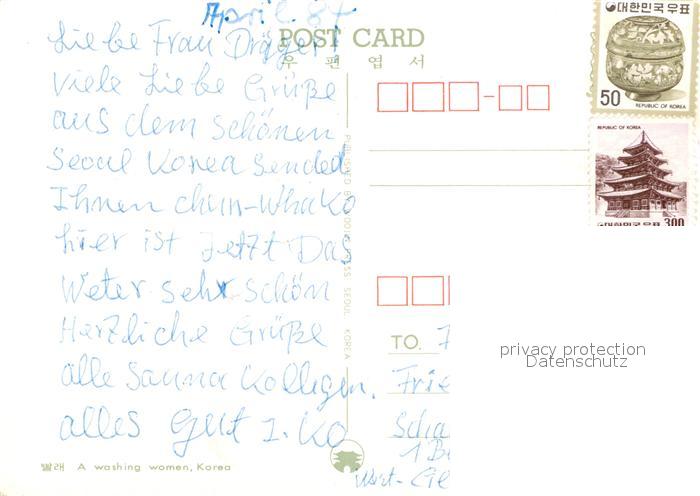 April 84
POST CARD
우 편 엽 서
Liebe Frau Dräger!
viele Liebe Grüße
aus dem schönen
Seoul Korea sended
Ihnen chun-Whako
hier ist jetzt Das
Weter sehr schön
Herzliche Grüße
alle Sauna Kollegen.
alles Gut z. Ko
빨래 A washing women, Korea
대한민국우표
50
REPUBLIC OF KOREA
REPUBLIC OF KOREA
대한민국우표 300
TO.
Frie
Scha
1 Be
West-Ge
privacy protection
Datenschutz